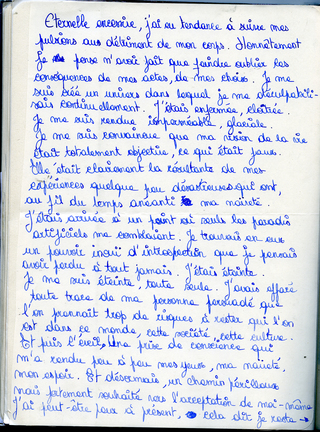 Eternelle insoumise, j'ai eu tendance à suivre mes
pulsions aux détriment de mon corps. Honnêtement
je pense n'avoir fait que feindre oublier les
conséquences de mes actes, de mes choix. Je me
suis créé un univers dans lequel je me déculpabili-
sais continuellement. J'étais enfermée, cloîtrée.
Je me suis rendue imperméable, glaciale.
Je me suis convaincue que ma vision de la vie
était totalement objective, ce qui était faux.
Elle était clairement la résultante de mes
expériences quelque peu désastreuses qui ont,
au fil du temps anéanti ma naïveté.
J'étais arrivée à un point où seuls les paradis
artificiels me comblaient. Je trouvais en eux
un pouvoir inouï d'introspection que je pensais
avoir perdu à tout jamais. J'étais éteinte.
Je me suis éteinte, toute seule. J'avais effacé
toute trace de ma personne persuadé que
l'on prennait trop de risques à rester qui l'on
est dans ce monde, cette société, cette culture.
Et puis l'éveil. Une prise de conscience qui
m'a rendu peu à peu mes yeux, ma naïveté,
mon espoir. Et désormais, un chemin périlleux
mais fortement souhaité vers l'acceptation de moi-même
J'ai peut-être peur à présent, cela dit je reste →